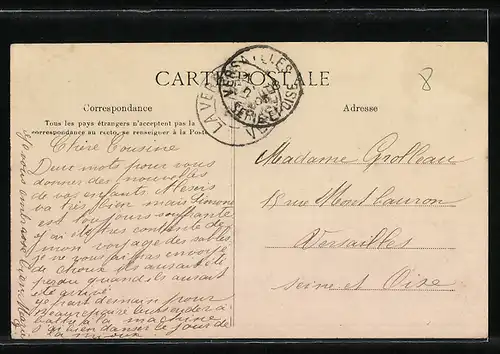 CARTE POSTALE
8
VERSAILLES
SEINE-ET-OISE
LA VER
Correspondance
Adresse
Tous les pays étrangers n'acceptent pas la
correspondance au recto, se renseigner à la Poste
Chère Cousine
Deux mots pour vous
donner des nouvelles
de vos enfants Alexis
va très bien mais Simone
est toujours souffrante
j'ai été très contente de
mon voyage des sables
je ne vous ai pas envoyé
de choux ils aurait été
perdu quand ils aurait
été arrivé
je part demain pour
Beaurepaire
battre a la machine
bien danser le jour de
la
Je vous embrasse bien
Madame Grolleau
18 rue Montbauron
Versailles
Seine et Oise